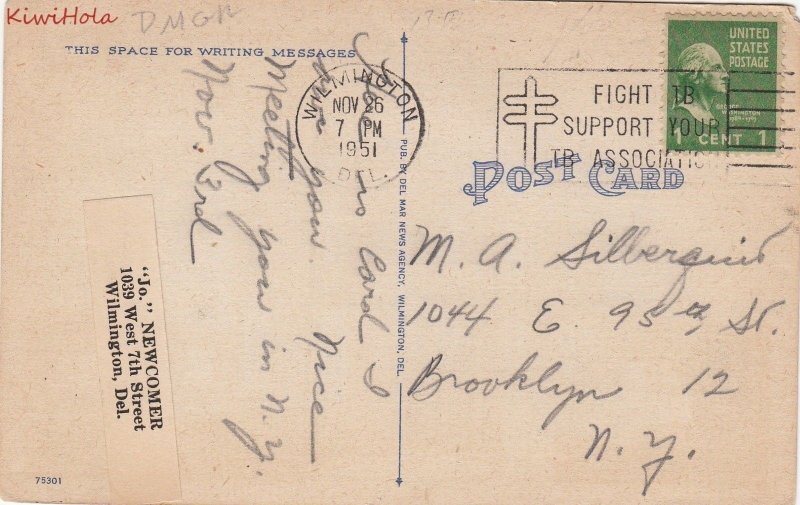 KiwiHola
DMGR
THIS SPACE FOR WRITING MESSAGES
no Card I
owe you. Nice
Meeting you in N.Y.
Nov. 3rd
"Jo." NEWCOMER
1039 West 7th Street
Wilmington, Del.
75301
WILMINGTON
NOV 26
7 PM
1951
DEL.
PUB. BY DEL MAR NEWS AGENCY, WILMINGTON, DEL.
FIGHT TB
SUPPORT YOUR
TB ASSOCIATION
UNITED
STATES
POSTAGE
GEORGE
WASHINGTON
1 CENT 1
POST CARD
M. A.
1044 E. 95th St.
Brooklyn 12
N.Y.